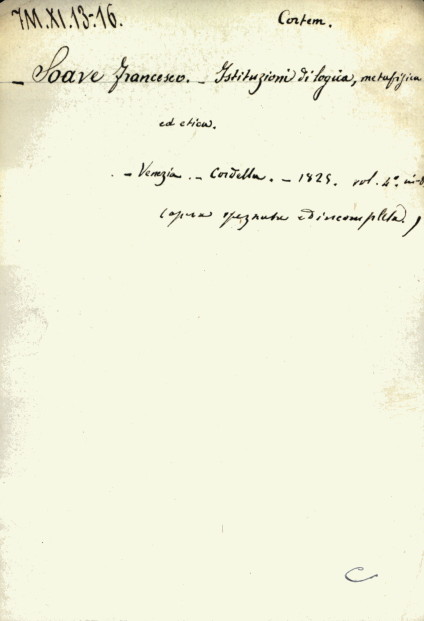 7M.XI.13-16. Contem.
_ Soave Francesco. _ Istituzioni di logica, metafisica
ed etica.
- Venezia - Cordella. - 1825. vol. 4° in-8
(opera spezzata ed incompleta.)
C